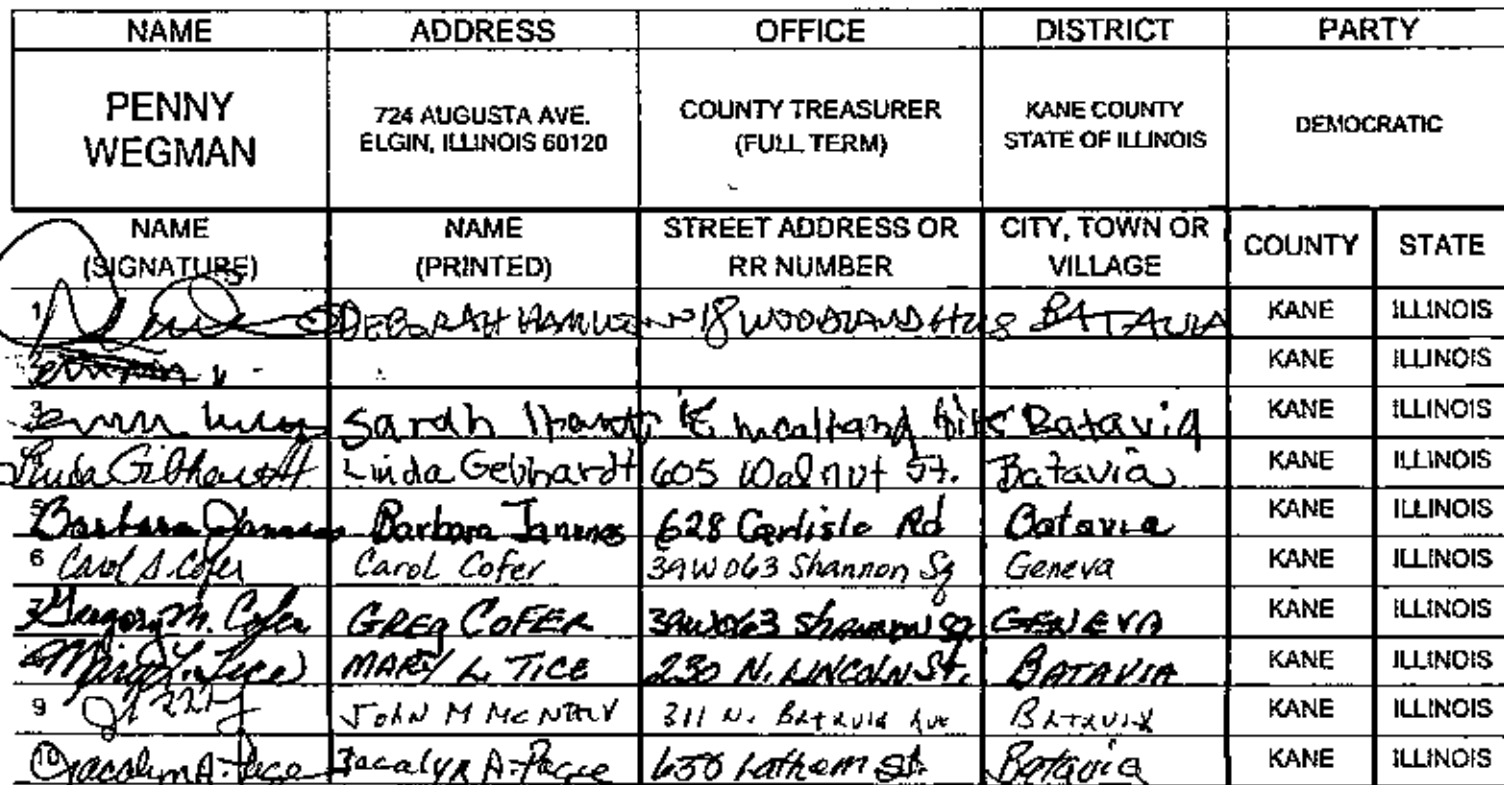 NAME ADDRESS OFFICE DISTRICT PARTY
PENNY WEGMAN 724 AUGUSTA AVE. ELGIN, ILLINOIS 60120 COUNTY TREASURER (FULL TERM) KANE COUNTY STATE OF ILLINOIS DEMOCRATIC
NAME (SIGNATURE) NAME (PRINTED) STREET ADDRESS OR RR NUMBER CITY, TOWN OR VILLAGE COUNTY STATE
1 DEBORAH 18 WOODLAND BATAVIA KANE ILLINOIS
KANE ILLINOIS
3 Sarah Batavia KANE ILLINOIS
Linda Gebhardt Linda Gebhardt 605 Walnut St. Batavia KANE ILLINOIS
5 Barbara Barbara 628 Carlisle Rd Batavia KANE ILLINOIS
6 Carol S. Cofer Carol Cofer 39W063 Shannon Sq Geneva KANE ILLINOIS
7 Gregory M. Cofer GREG COFER 39W063 Shannon Sq GENEVA KANE ILLINOIS
Mary L. Tice MARY L. TICE 230 N. LINCOLN St. BATAVIA KANE ILLINOIS
9 JOHN M McNALLY 311 N. BATAVIA Ave BATAVIA KANE ILLINOIS
10 Jacalyn A. Jacalyn A. Latham St. Batavia KANE ILLINOIS